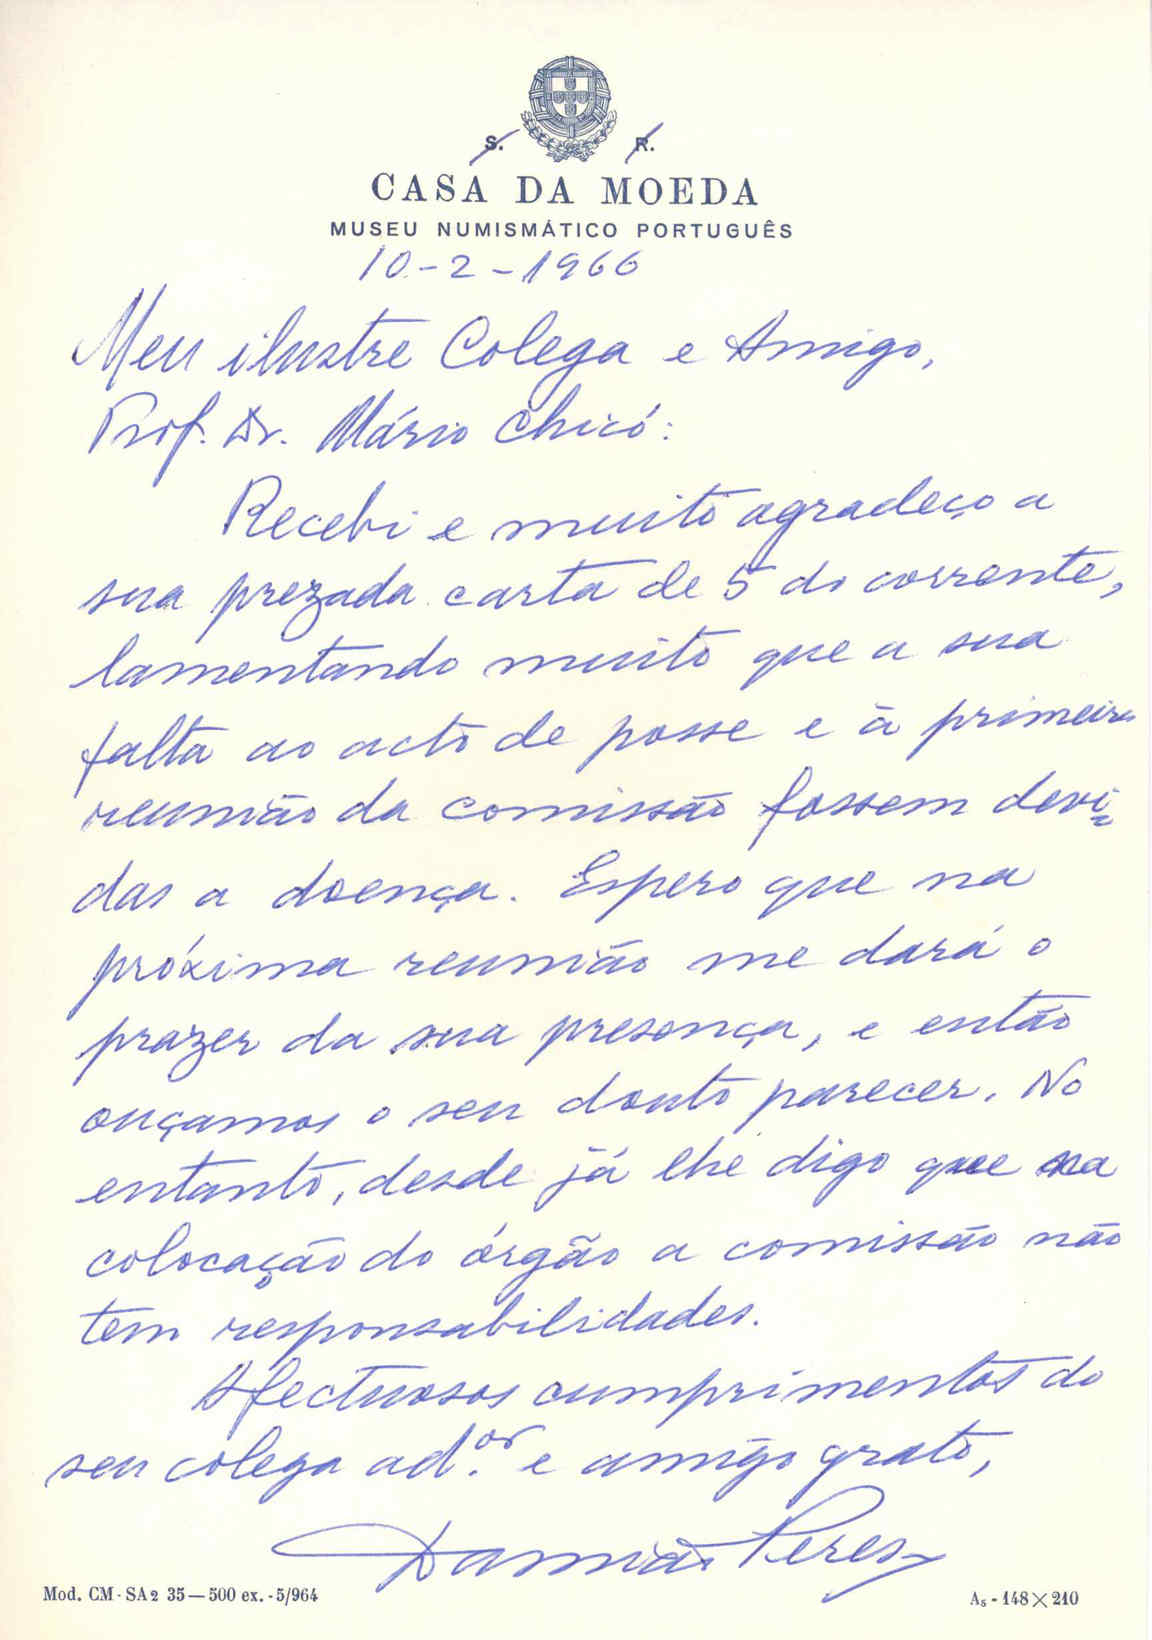 S. R.
CASA DA MOEDA
MUSEU NUMISMÁTICO PORTUGUÊS
10-2-1966
Meu ilustre Colega e Amigo,
Prof. Dr. Mário Chicó:
Recebi e muito agradeço a
sua prezada carta de 5 do corrente,
lamentando muito que a sua
falta ao acto de posse e à primeira
reunião da comissão fossem devi-
das a doença. Espero que na
próxima reunião me dará o
prazer da sua presença, e então
ouçamos o seu douto parecer. No
entanto, desde já lhe digo que na
colocação do órgão a comissão não
tem responsabilidades.
Afectuosos cumprimentos do
seu colega ad.or e amigo grato,
Damião Peres
Mod. CM-SA2 35—500 ex. -5/964
A5 - 148×210